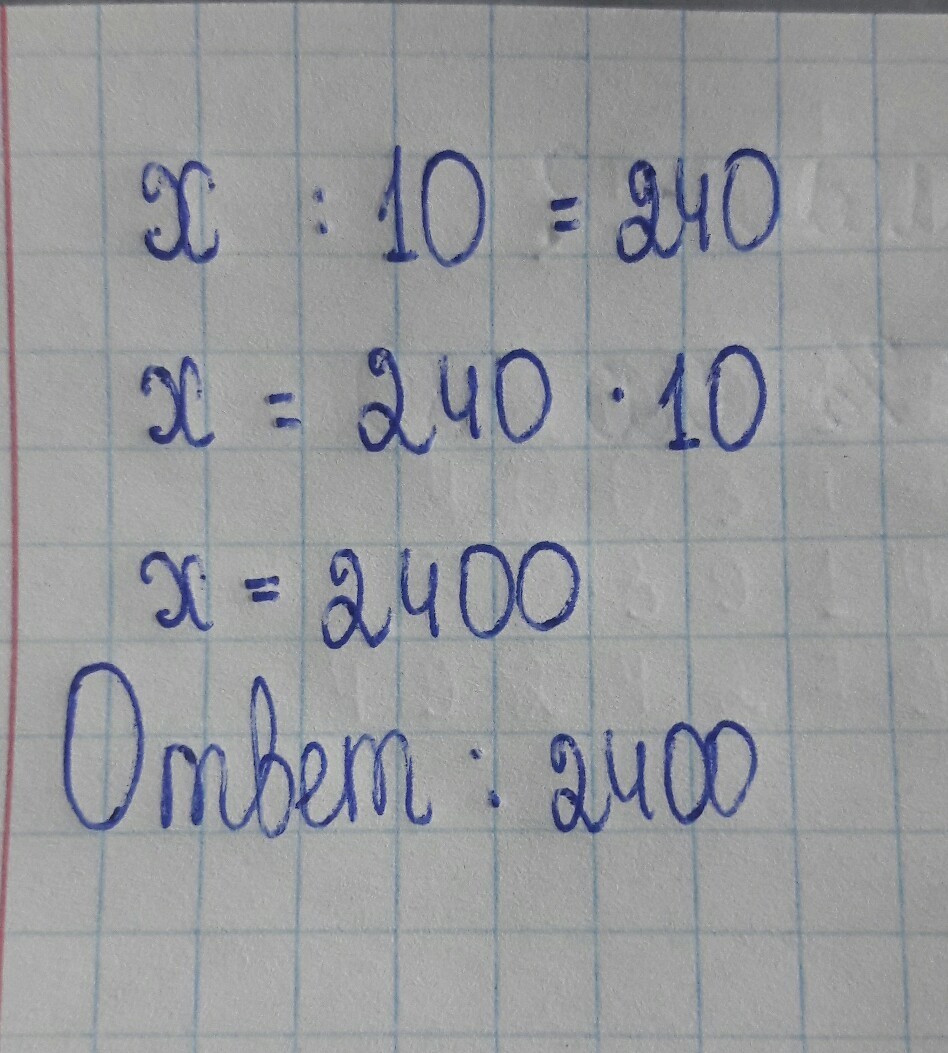 x : 10 = 240
x = 240 · 10
x = 2400
Ответ : 2400